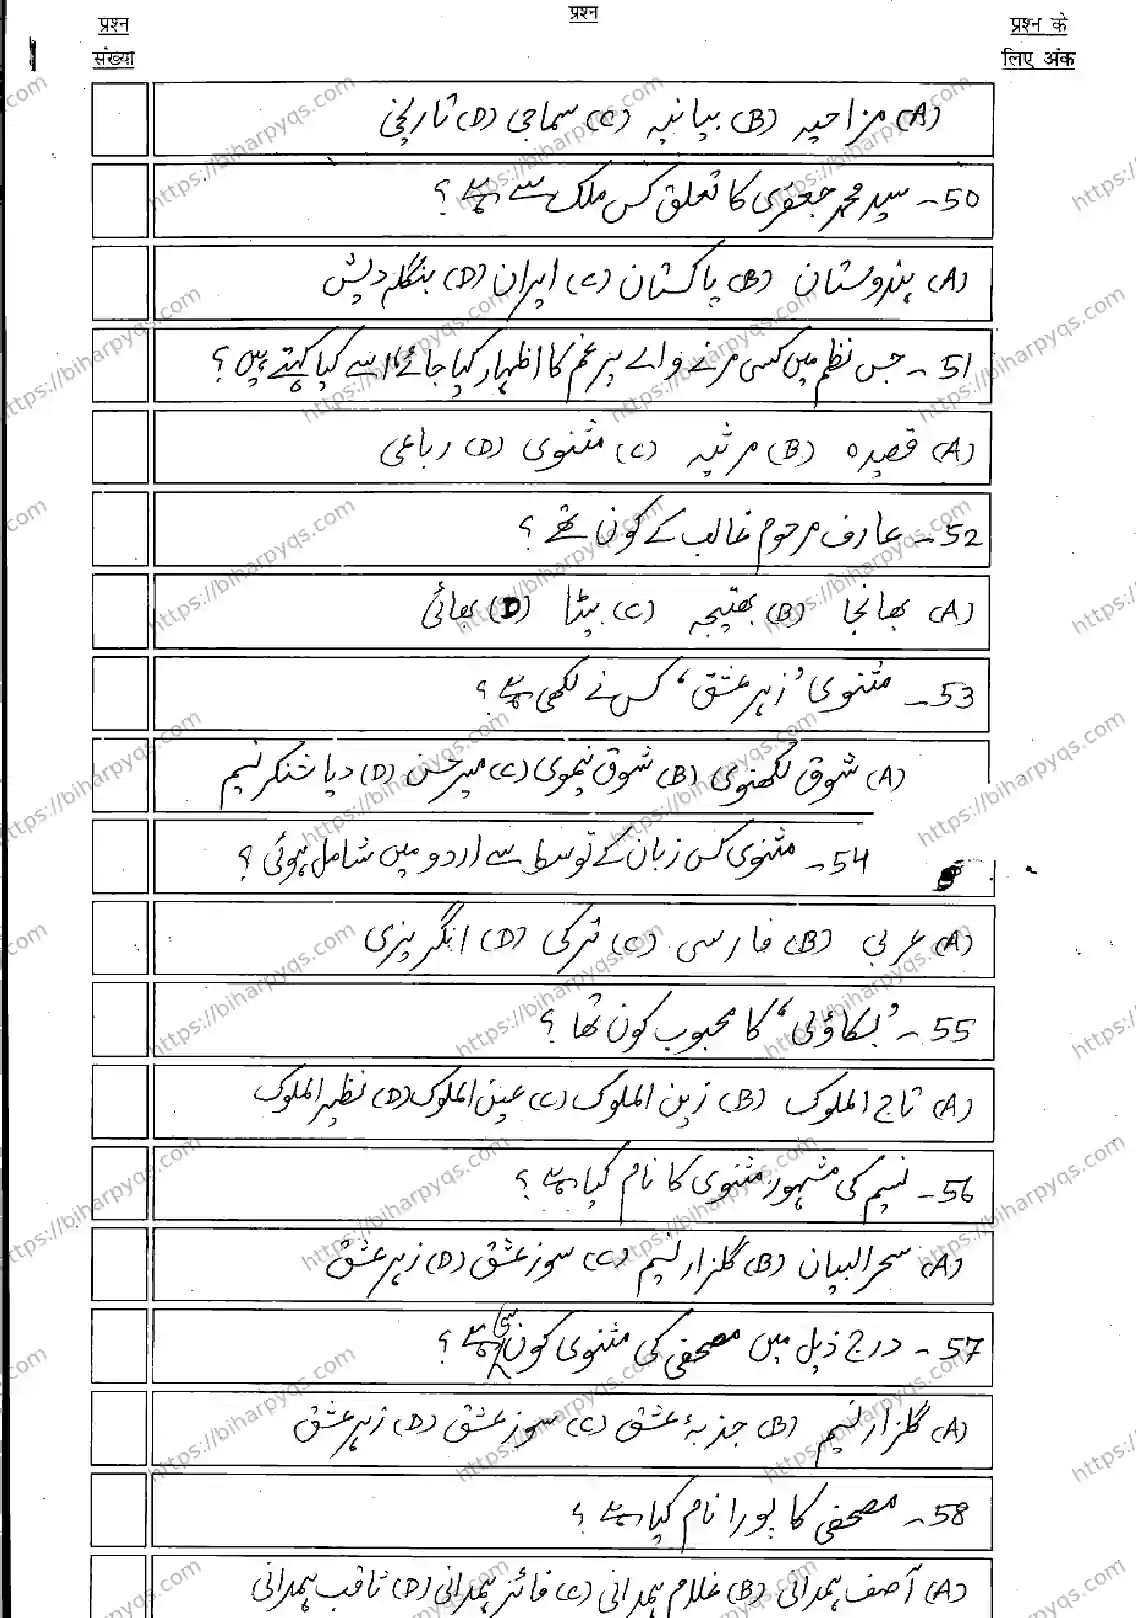 प्रश्न संख्या
प्रश्न
प्रश्न के लिए अंक
(A) مزاحیہ (B) بیانیہ (C) سماجی (D) تاریخی
50۔ سید محمد جعفری کا تعلق کس ملک سے ہے؟
(A) ہندوستان (B) پاکستان (C) ایران (D) بنگلہ دیش
51۔ جس نظم میں کسی مرنے والے پر غم کا اظہار کیا جائے، اسے کیا کہتے ہیں؟
(A) قصیدہ (B) مرثیہ (C) مثنوی (D) رباعی
52۔ عارف مرحوم غالب کے کون تھے؟
(A) بھانجا (B) بھتیجہ (C) بیٹا (D) بھائی
53۔ مثنوی ’زہر عشق‘ کس نے لکھی ہے؟
(A) شوق لکھنوی (B) شوق نیموی (C) میر حسن (D) دیا شنکر نسیم
54۔ مثنوی کس زبان کے توسط سے اردو میں شامل ہوئی؟
(A) عربی (B) فارسی (C) ترکی (D) انگریزی
55۔ ’بکاؤلی‘ کا محبوب کون تھا؟
(A) تاج الملوک (B) زین الملوک (C) عین الملوک (D) نظیر الملوک
56۔ نسیم کی مشہور مثنوی کا نام کیا ہے؟
(A) سحر البیان (B) گلزار نسیم (C) سوز عشق (D) زہر عشق
57۔ درج ذیل میں مصحفی کی مثنوی کون سی ہے؟
(A) گلزار نسیم (B) جذبۂ عشق (C) سوز عشق (D) زہر عشق
58۔ مصحفی کا پورا نام کیا ہے؟
(A) آصف ہمدانی (B) غلام ہمدانی (C) فائز ہمدانی (D) ثاقب ہمدانی
https://biharpyqs.com